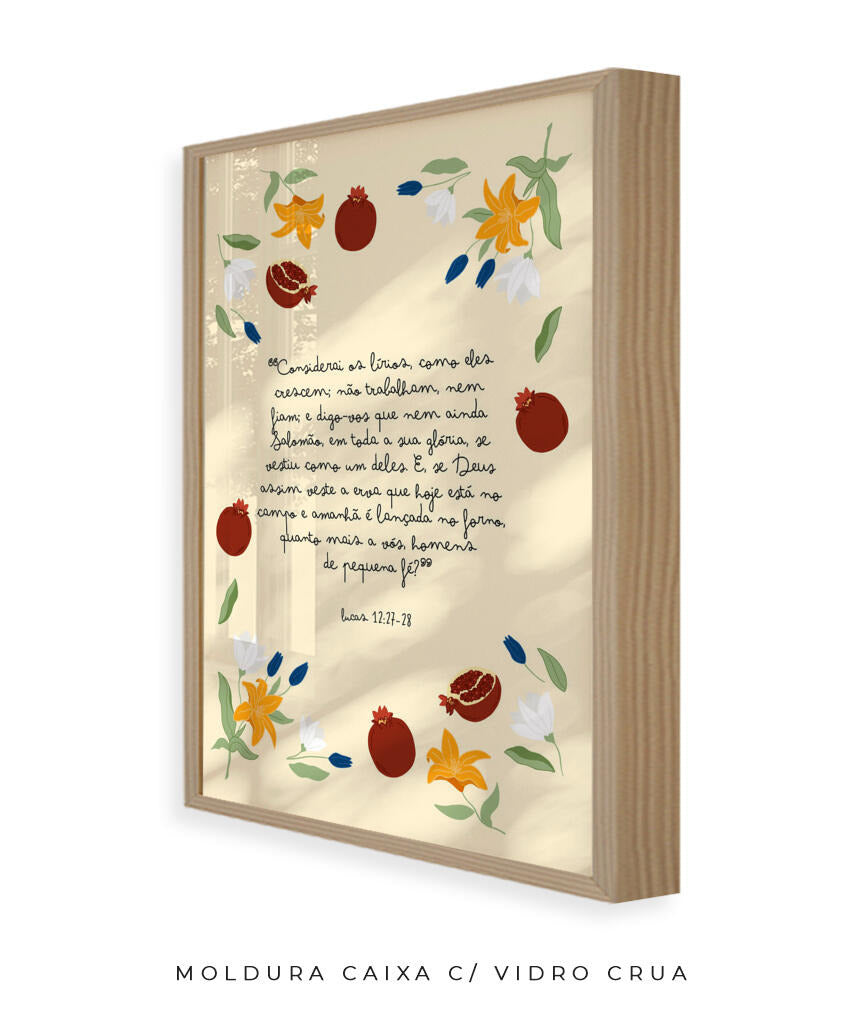 “Considerai os lírios, como eles
crescem; não trabalham, nem
fiam; e digo-vos que nem ainda
Salomão, em toda a sua glória, se
vestiu como um deles. E, se Deus
assim veste a erva que hoje está no
campo e amanhã é lançada no forno,
quanto mais a vós, homens
de pequena fé?”
lucas 12:27-28
MOLDURA CAIXA C/ VIDRO CRUA